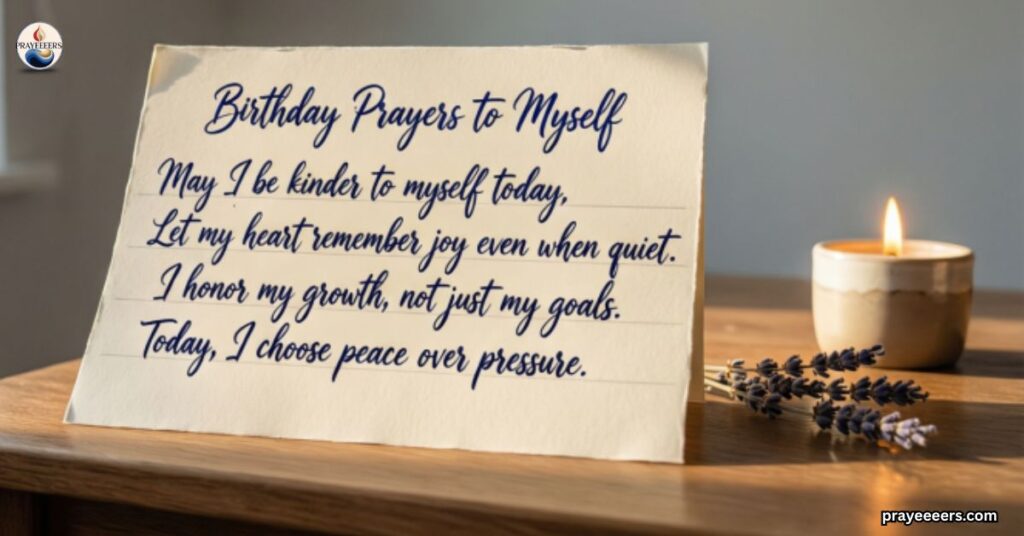 PRAYEEEERS
Birthday Prayers to Myself
May I be kinder to myself today,
Let my heart remember joy even when quiet.
I honor my growth, not just my goals.
Today, I choose peace over pressure.
prayeeeers.com